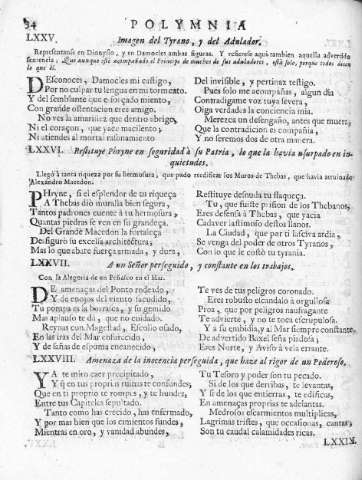 34
POLYMNIA
LXXV.
Imagen del Tyrano, y del Adulador.
Representanse en Dionysio, y en Damocles ambas figuras. Y refierese aqui tambien aquella advertida
sentencia, Que aunque esté acompañado el Principe de muchos de sus aduladores, está solo, porque todos dicen
lo que él.
DEsconoces, Damocles mi castigo,
Por no culpar tu lengua en mi tormento,
Y del semblante que esforçado miento,
Con grande ostentacion eres amigo.
No ves la amarillez que dentro abrigo,
Ni el coraçon, que yace macilento,
Ni atiendes al mortal razonamiento
Del invisible, y pertinaz testigo.
Pues solo me acompañas, algun dia
Contradigame voz tuya severa,
Oiga verdades la conciencia mia.
Merezca un desengaño, antes que muera,
Que la contradicion es compañia,
Y no seremos dos de otra manera.
LXXVI.
Restituye Phryne en seguridad à su Patria, lo que la havia usurpado en in-
quietudes.
Llegó à tanta riqueza por su hermosura, que pudo reedificar los Muros de Thebas, que havia arruinado
Alexandro Macedon.
PHryne, si el esplendor de tu riqueça
A Thebas diò muralla bien segura,
Tantos padrones cuente à tu hermosura,
Quantas piedras se ven en su grandeça.
Del Grande Macedon la fortaleça
Desfiguró su excelsa architectura,
Mas lo que abate fuerça armada, y dura,
Restituye desnuda tu flaqueça.
Tu, que fuiste prision de los Thebanos,
Eres defensa à Thebas, que yacia
Cadaver lastimoso destos llanos.
La Ciudad, que por ti lasciva ardia,
Se venga del poder de otros Tyranos,
Con lo que le costó tu tyrania.
LXXVII.
A un Señor perseguido, y constante en los trabajos.
Con la Alegoria de un Peñasco en el Mar.
DE amenaças del Ponto rodeado,
Y de enojos del viento sacudido,
Tu pompa es la borrasca, y su gemido
Mas aplauso te dà, que no cuidado.
Reynas con Magestad, Escollo osado,
En las iras del Mar enfurecido,
Y de sañas de espuma encanecido,
Te ves de tus peligros coronado.
Eres robusto escandalo à orgullosa
Proa, que por peligros naufragante
Te advierte, y no te toca escrupulosa.
Y à su embidia, y al Mar siempre constante,
De advertido Baxel seña piadosa,
Eres Norte, y Aviso à vela errante.
LXXVIII.
Amenaza de la inocencia perseguida, que hace al rigor de un Poderoso.
YA te miro caer precipitado,
Y que en tus propria ruinas te confundes,
Que en ti proprio te rompes, y te hundes,
Entre tus Capiteles sepultado.
Tanto como has crecido, has enfermado,
Y por mas bien que los cimientos fundes,
Mientras en oro, y vanidad abundes,
Tu Tesoro y poder son tu pecado.
Si de los que derribas, te levantas,
Y si de los que entierras, te edificas,
En amenaças proprias te adelantas.
Medrosos escarmientos multiplicas,
Lagrimas tristes, que occasionas, cantas,
Son tu caudal calamidades ricas.
LXXIX.